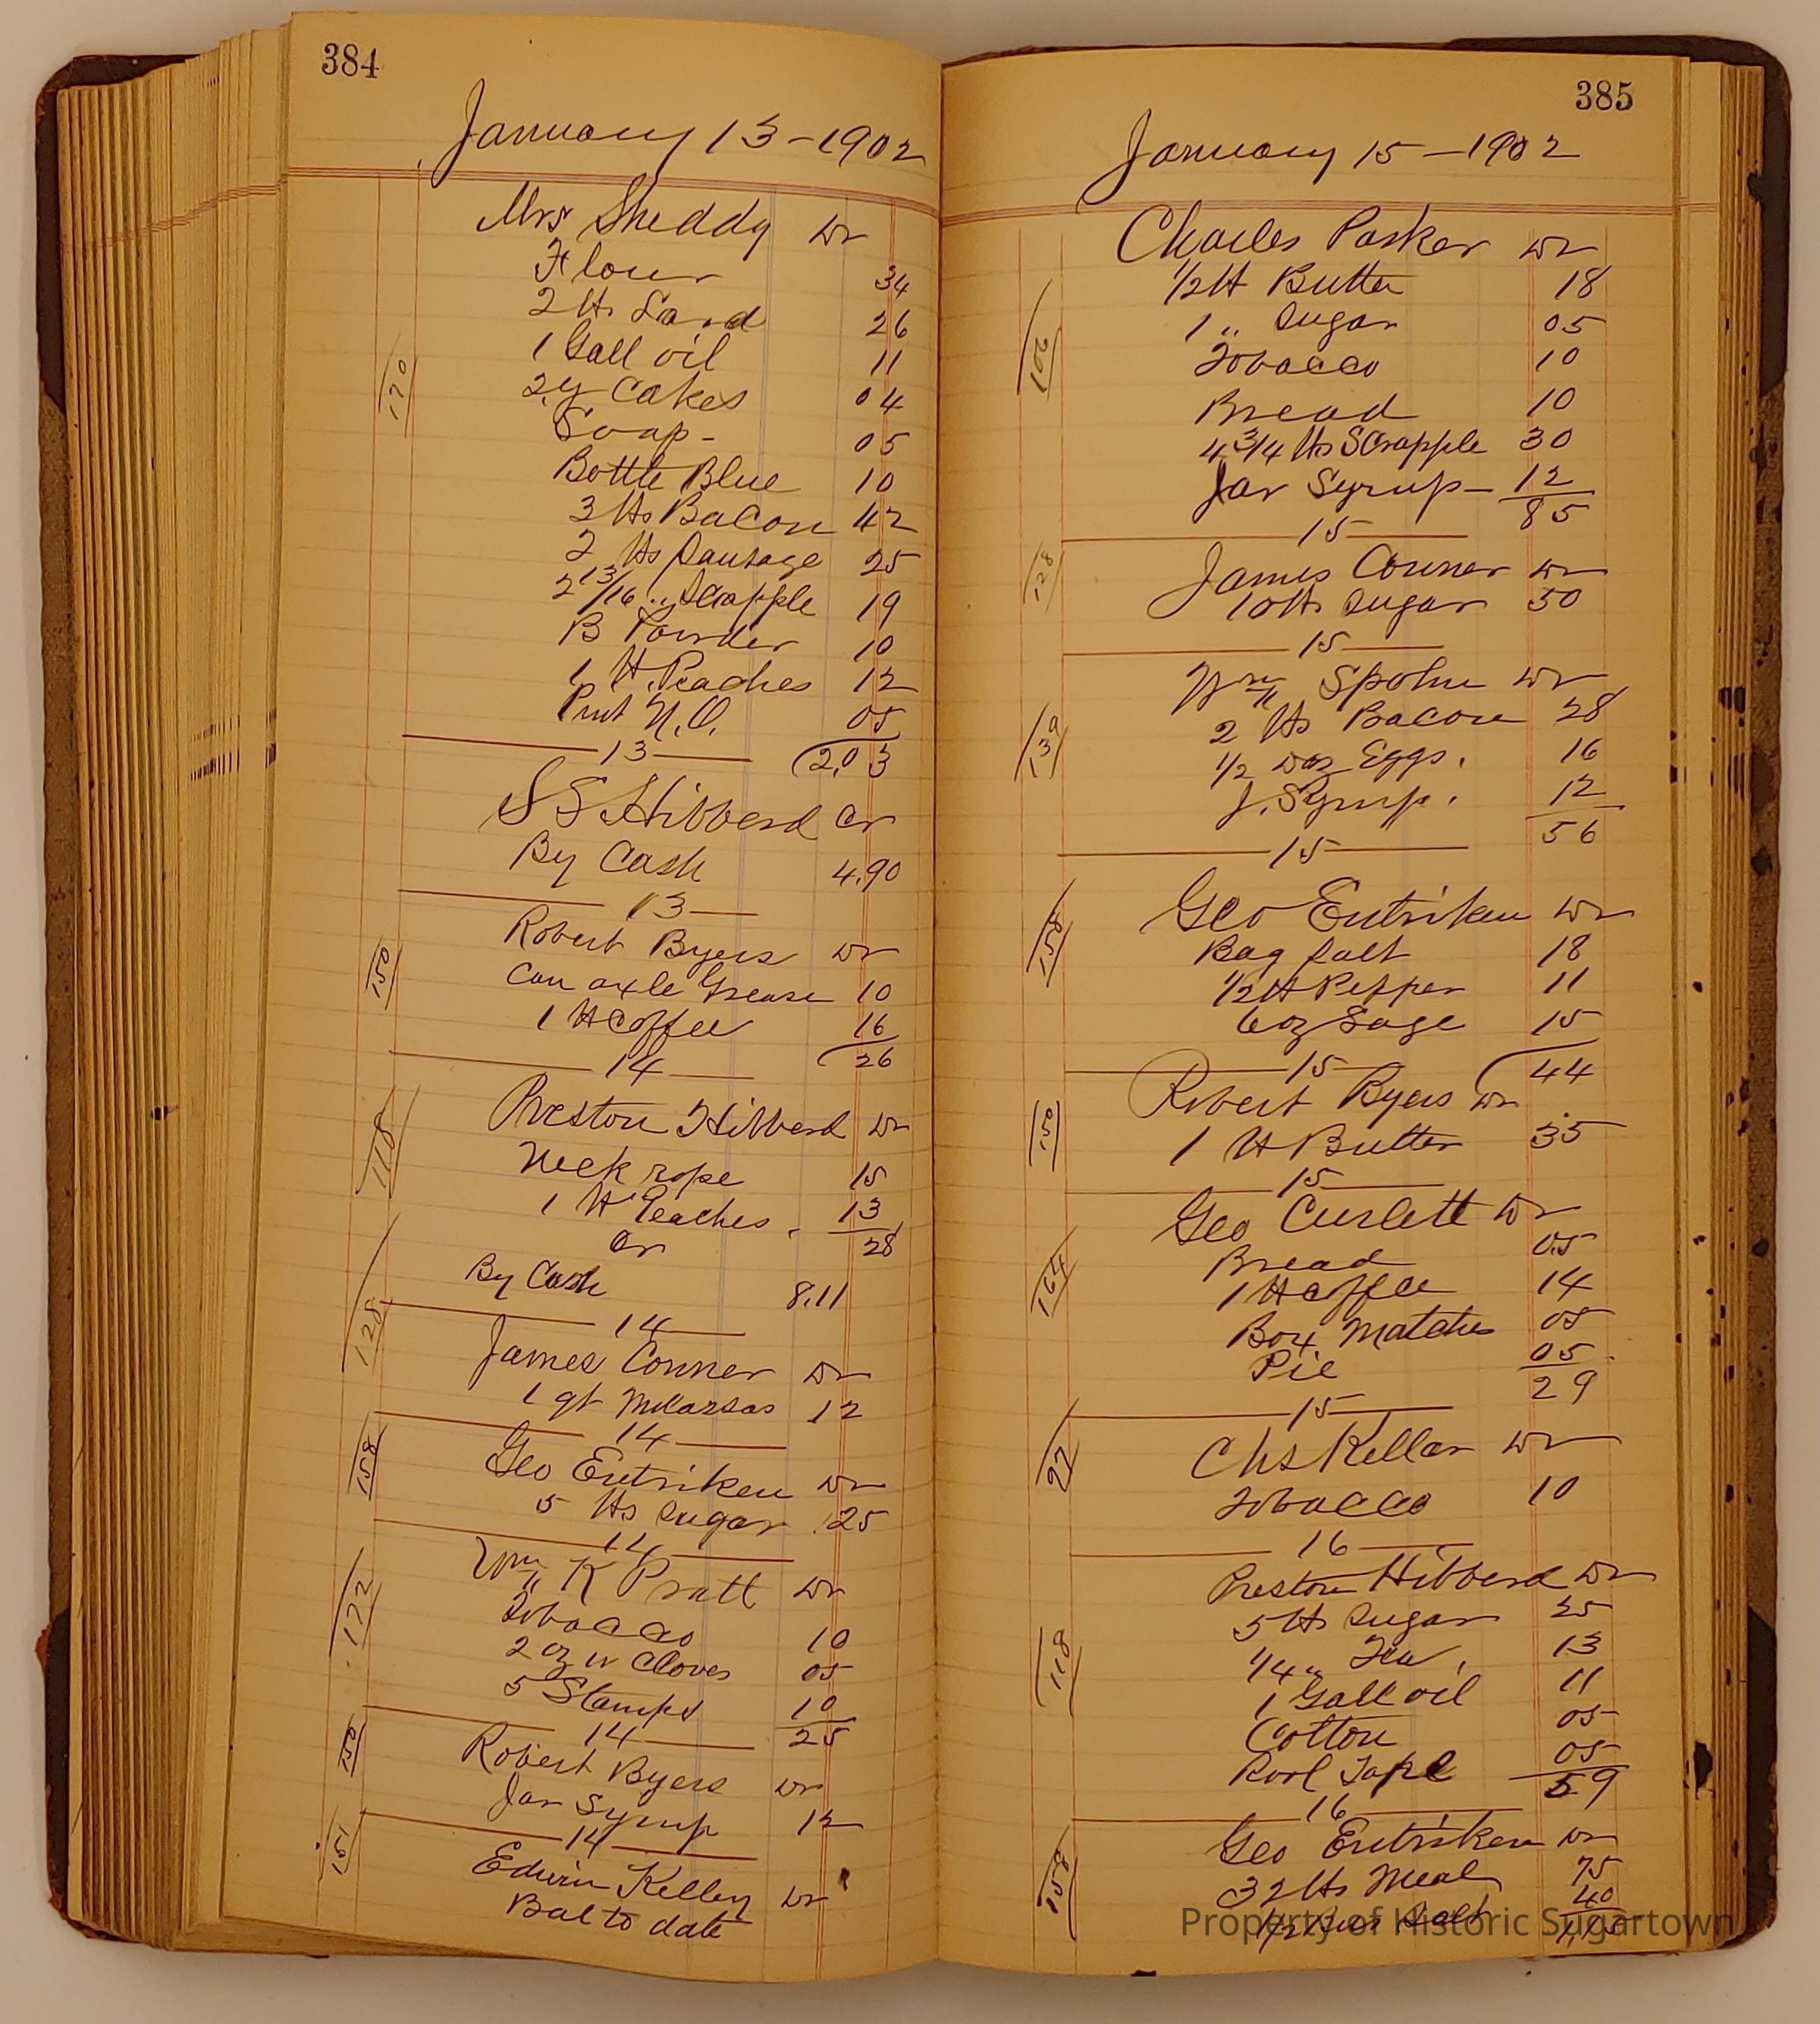 384
January 13-1902
Mrs Sheddy Dr
Flour 34
2 lbs Lard 26
170
1 Gall oil 11
2 y Cakes 04
Soap- 05
Bottle Blue 10
3 lbs Bacon 42
2 lbs Sausage 25
2 13/16 " Scrapple 19
B Powder 10
1 lb Peaches 12
Pint N.O. 05
13 2,03
S S Hibberd Cr
By Cash 4.90
13
150
Robert Byers Dr
Can axle Grease 10
1 lb Coffee 16
14 26
118
Preston Hibberd Dr
Neck rope 15
1 lb Peaches. 13
Cr 28
By Cash 8.11
14
128
James Conner Dr
1 qt Mollassas 12
14
158
Geo Entriken Dr
5 lbs Sugar .25
14
172
Wm K Pratt Dr
Tobacco 10
2 oz W Cloves 05
5 Stamps 10
14 25
150
Robert Byers Dr
Jar Syrup 12
14
151
Edwin Kelley Dr
Bal to date
385
January 15-1902
Charles Parker Dr
1/2 lb Butter 18
106
1 " Sugar 05
Tobacco 10
Bread 10
4 3/4 lbs Scrapple 30
Jar Syrup- 12
15 85
128
James Conner Dr
10 lbs Sugar 50
15
139
Wm Spohn Dr
2 lbs Bacon 28
1/2 Doz Eggs. 16
J. Syrup. 12
56
15
158
Geo Entriken Dr
Bag Salt 18
1/2 lb Pepper 11
6 oz Sage 15
15 44
150
Robert Byers Dr
1 lb Butter 35
15
164
Geo Curlett Dr
Bread 05
1 lb Coffee 14
Box Matches 05
Pie 05
29
15
22
Chs Kellar Dr
Tobacco 10
16
118
Preston Hibberd Dr
5 lbs Sugar 25
1/4 " Tea. 13
1 Gall oil 11
Cotton 05
Rool Tape 05
59
16
158
Geo Entriken Dr
32 lbs Meal 75
1/2 Bus Salt 40
1,15
Property of Historic Sugartown